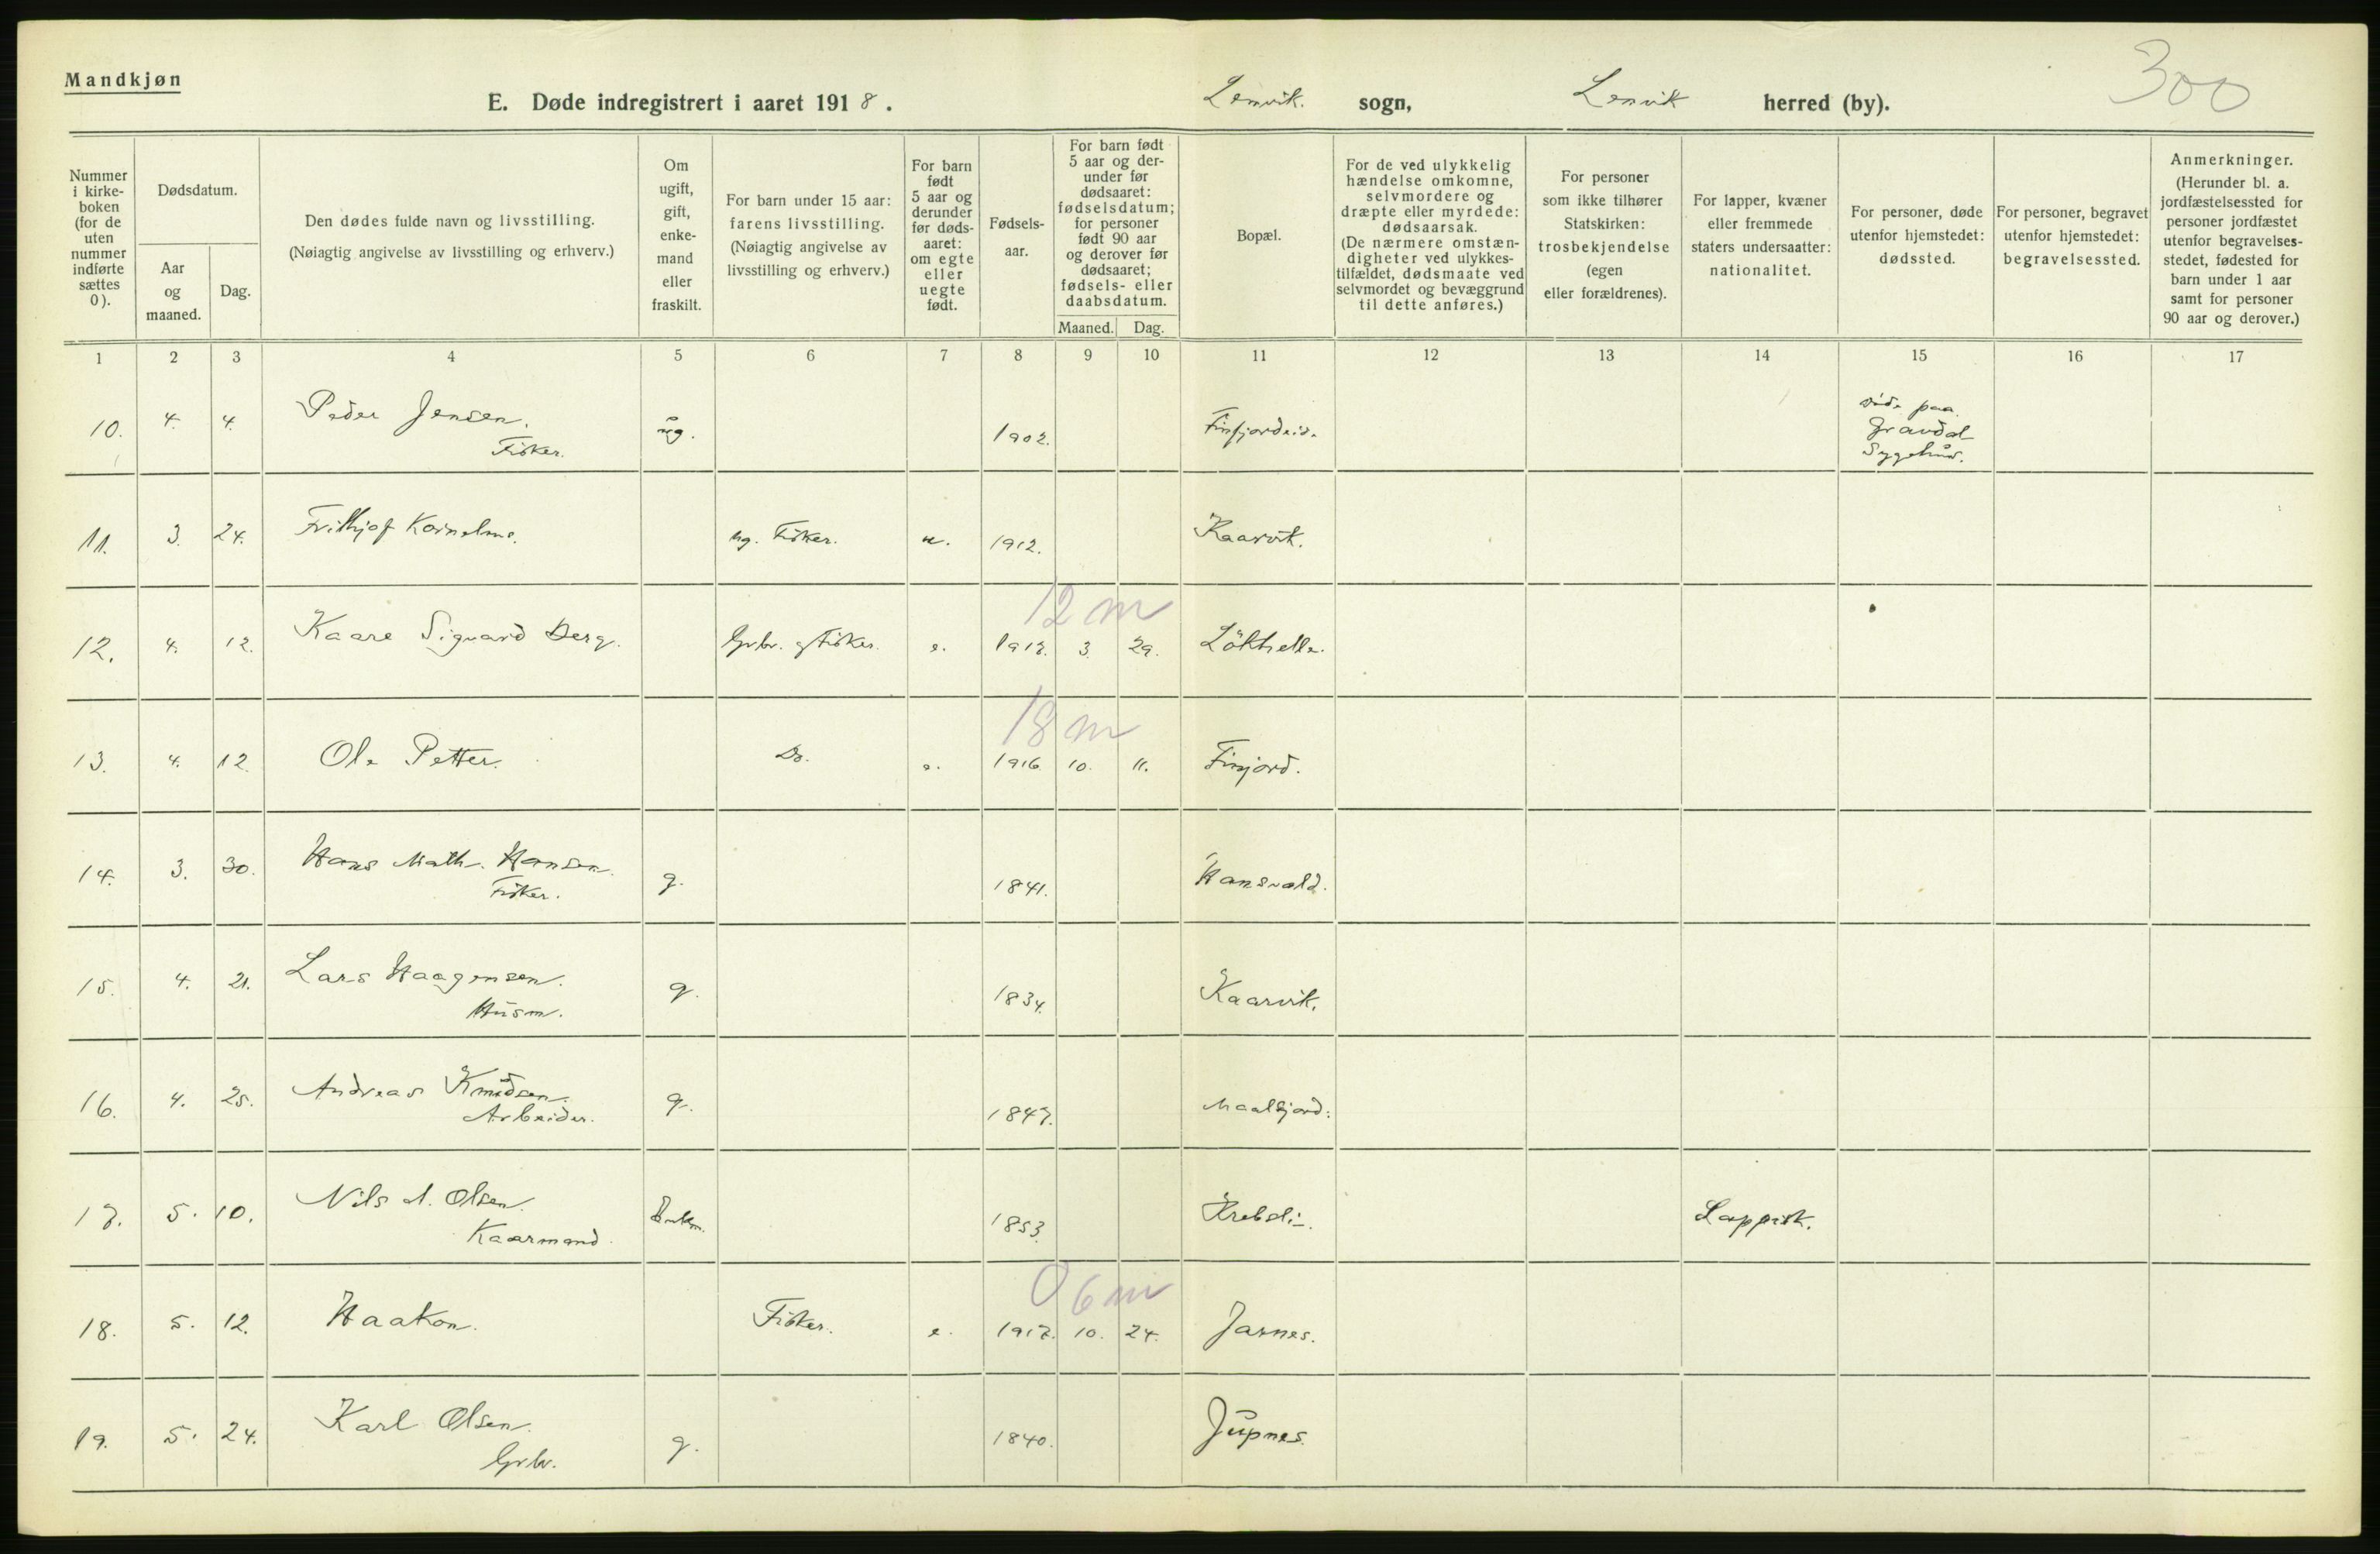 Mandkjøn
E. Døde indregistrert i aaret 1918. Lenvik. sogn, Lenvik herred (by). 300
Nummer i kirke-boken (for de uten nummer indførte sættes 0).
Dødsdatum.
Aar og maaned.
Dag.
Den dødes fulde navn og livsstilling.
(Nøiagtig angivelse av livsstilling og erhverv.)
Om ugift, gift, enke-mand eller fraskilt.
For barn under 15 aar: farens livsstilling.
(Nøiagtig angivelse av livsstilling og erhverv.)
For barn født 5 aar og derunder før døds-aaret: om egte eller uegte født.
Fødsels-aar.
For barn født 5 aar og der-under før dødsaaret: fødselsdatum; for personer født 90 aar og derover før dødsaaret; fødsels- eller daabsdatum.
Maaned. Dag.
Bopæl.
For de ved ulykkelig hændelse omkomne, selvmordere og dræpte eller myrdede: dødsaarsak.
(De nærmere omstæn-digheter ved ulykkes-tilfældet, dødsmaate ved selvmordet og bevæggrund til dette anføres.)
For personer som ikke tilhører Statskirken: trosbekjendelse (egen eller forældrenes).
For lapper, kvæner eller fremmede staters undersaatter: nationalitet.
For personer, døde utenfor hjemstedet: dødssted.
For personer, begravet utenfor hjemstedet: begravelsessted.
Anmerkninger.
(Herunder bl. a. jordfæstelsessted for personer jordfæstet utenfor begravelses-stedet, fødested for barn under 1 aar samt for personer 90 aar og derover.)
1 2 3 4 5 6 7 8 9 10 11 12 13 14 15 16 17
10. 4. 4. Peder Jensen. Fisker. ug. 1902. Finfjordeid. Døde paa Gravdal Sygehus.
11. 3. 24. Frithjof Kornelius. ug. Fisker. u. 1912. Kaarvik.
12 m
12. 4. 12. Kaare Sigvard Berg. Grbr. og Fisker. e. 1917. 3. 29. Lökhelle.
18 m
13. 4. 12. Ole Petter. Do. e. 1916. 10. 11. Finfjord.
14. 3. 30. Hans Math. Hansen. Fisker. g. 1841. Hansvold.
15. 4. 21. Lars Haagensen. Husm. g. 1834. Kaarvik.
16. 4. 25. Andreas Knudsen. Arbeider. g. 1847. Maalfjord.
17. 5. 10. Nils A. Olsen. Kaarmand. Enkm. 1853. Lappisk.
0 6 m
18. 5. 12. Haakon. Fisker. e. 1917. 10. 24. Jarnes.
19. 5. 24. Karl Olsen. Grbr. g. 1840. Jupnes.